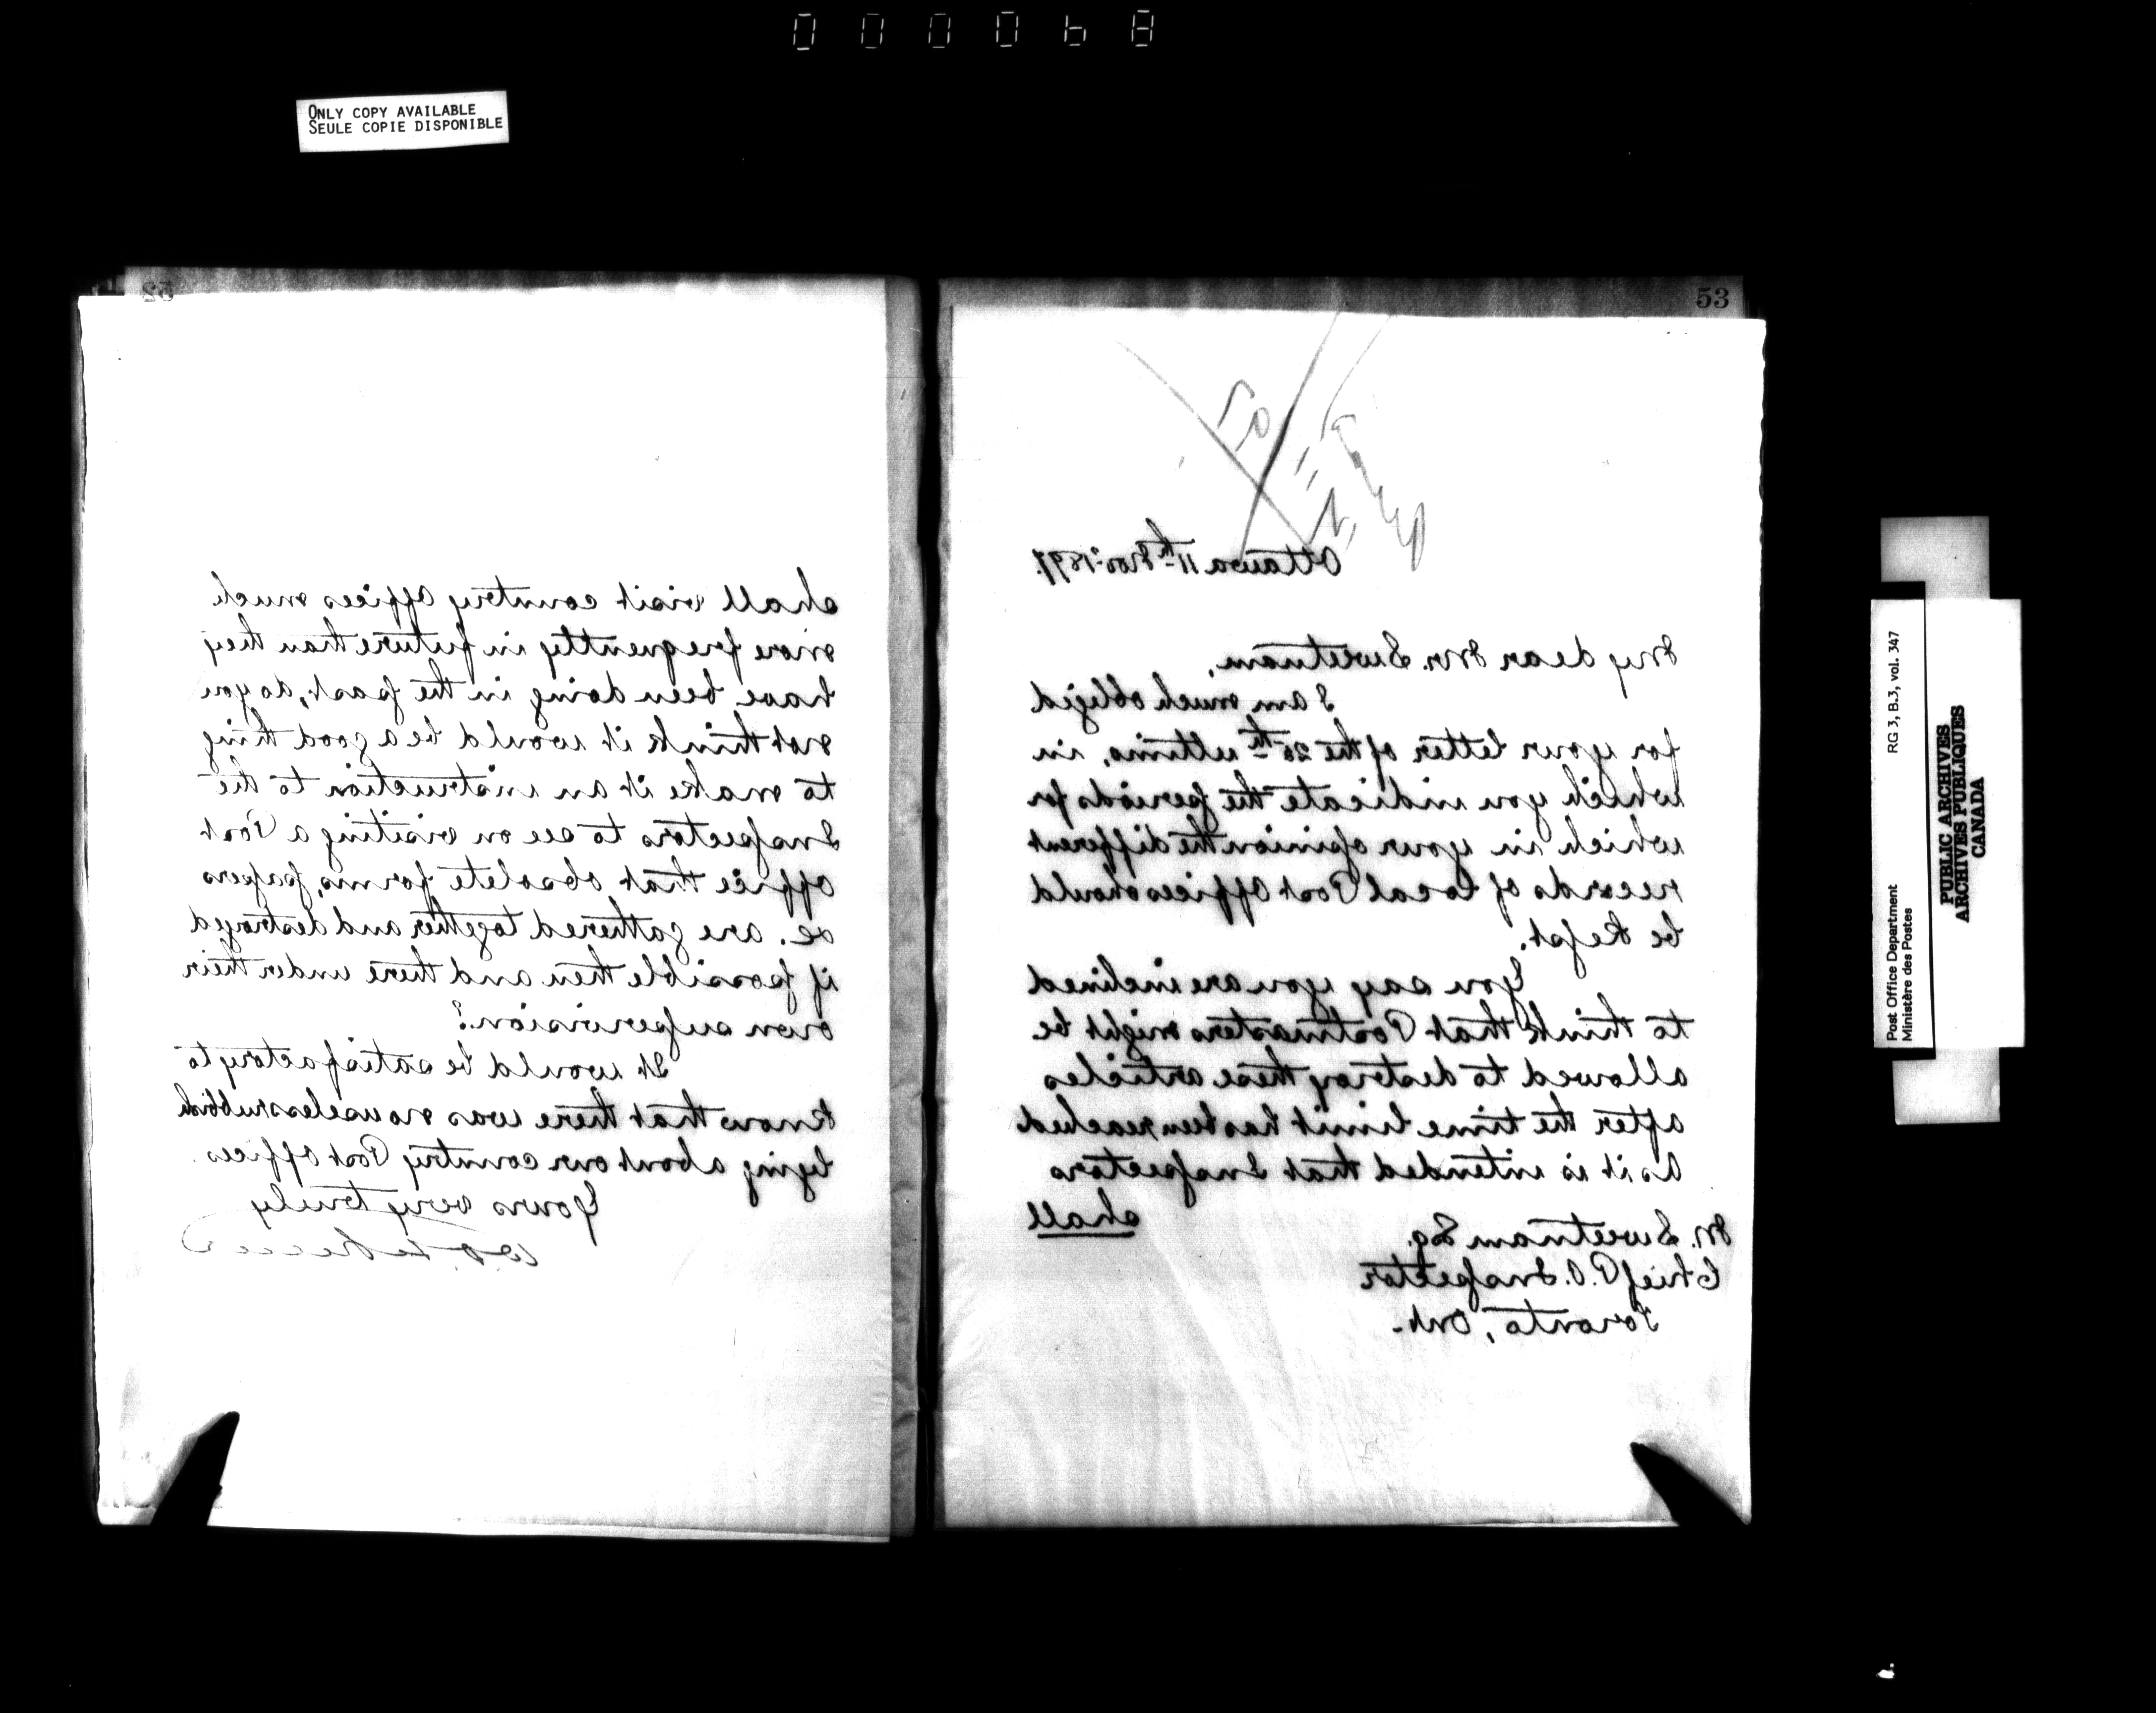 000068
ONLY COPY AVAILABLE
SEULE COPIE DISPONIBLE
53
Ottawa 11th Nov. 1897.
My dear Mr. Sweetnam,
I am much obliged
for your letter of the 20th ultimo, in
which you indicate the periods for
which in your opinion the different
records of local Post Offices should
be kept.
You say you are inclined
to think that Postmasters might be
allowed to destroy these articles
after the time limit has been reached
As it is intended that Inspectors
shall
M. Sweetnam Esq.
Chief P.O. Inspector
Toronto, Ont.
shall visit country offices much
more frequently in future than they
have been doing in the past, do you
not think it would be a good thing
to make it an instruction to the
Inspectors to see on visiting a Post
Office that obsolete forms, papers
&c. are gathered together and destroyed
if possible then and there under their
own supervision?
It would be satisfactory to
know that there was no useless rubbish
lying about our country Post Offices
Yours very truly
Post Office Department
Ministère des Postes
RG 3, B.3, vol. 347
PUBLIC ARCHIVES
ARCHIVES PUBLIQUES
CANADA